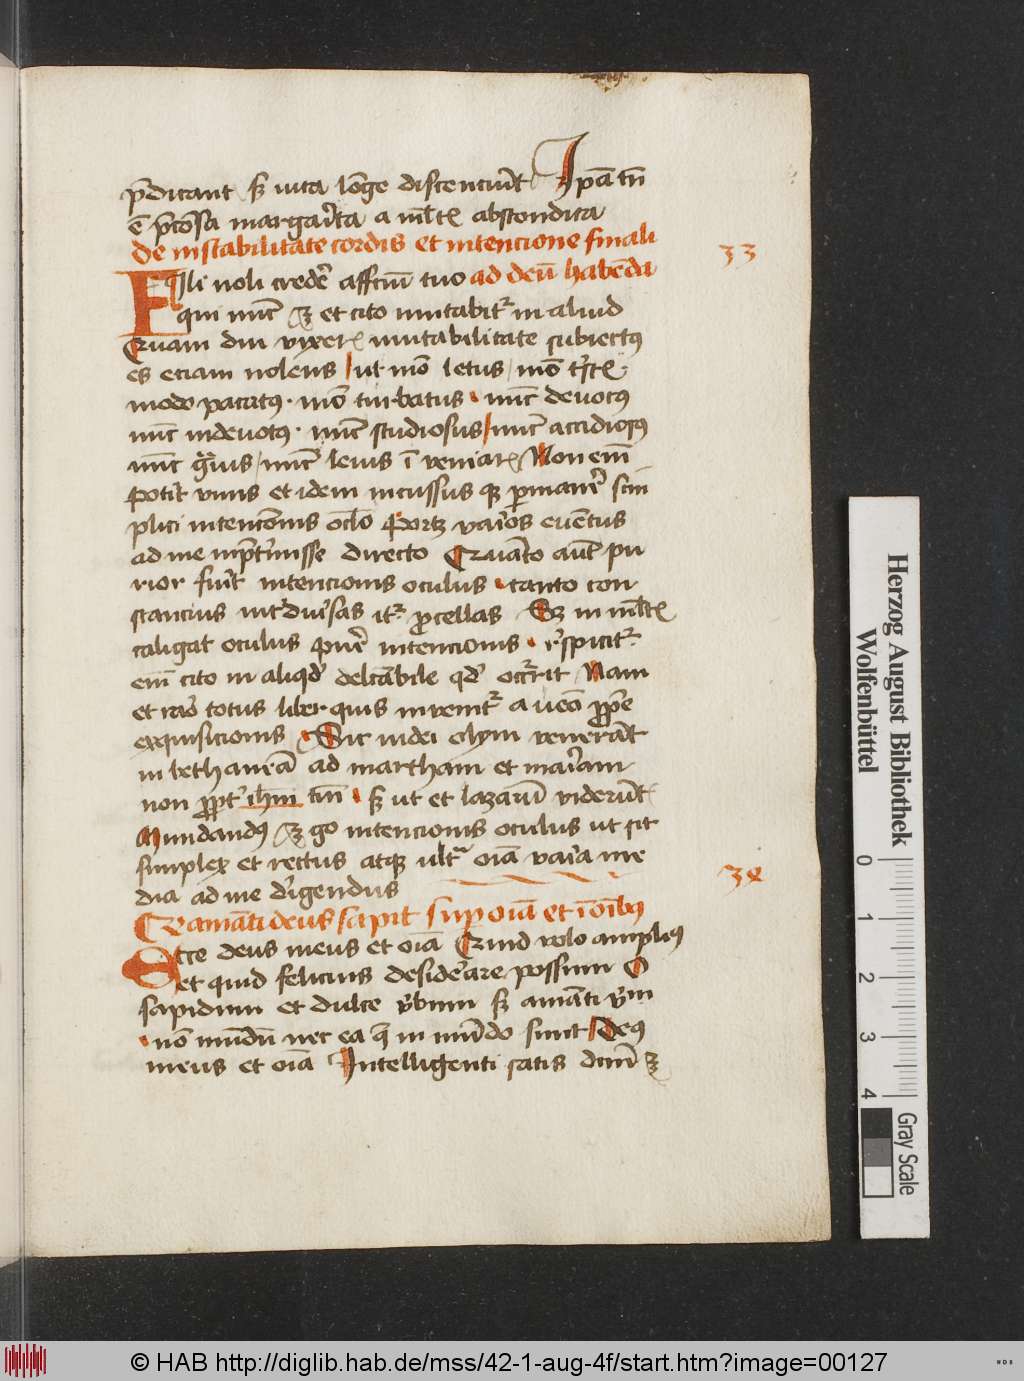 p̄dicant sꝫ uita lōge discenciūt Ipā tn̄
ē p̄ciōsa margaīta a ml̄tꝭ abscondita
de instabilitate cordis et intencione finali
Fili noli credē affcūi tuo ad deū habēda
33
qui nūc ꝫ et cito mutabitᷣ in aliud
Quam diu vixerꝭ mutabilitate subiectꝰ
es eciam nolens ut mō letus mō tr̄stꝭ
modo pacatꝰ mō turbatus nūc deuotꝰ
nūc indeuotꝰ nūc studiosus nūc accidiosꝰ
nūc gᷓuis nūc leuis
Non enī
potīt unus et idem inconcussus qꝫ ꝑmanē sim
plici intencōnis oclō
uaīos euētus
ad me directo Quāto aut̄ pu
rior fuīt intencionis oculus tanto con
stancius int̄ diūsas itᷣ ꝓcellas Sꝫ in ml̄tꝭ
caligat oculus purē intencionis r̄spicitᷣ
enī cito in aliqd̓ delcābile qd̓ occᷣrit Nam
et raō totus liber quis inuenitᷣ a neō ꝓpīe
exquisicionis Sic iudei olym venerāt
in bethaniā ad martham et maīam
non ꝓpt̓ ih̄m tm̄ sꝫ ut et lazarū viderūt
Mundandꝰ ꝫ go intencionis oculus ut sit
simplex et rectus atqꝫ ultᷓ oīa uaīa me
dia ad me dīgendus
34
Q amāti deus sapit suꝑ oīa et ī oībꝰ
Ecce deus meus et oīa Quid volo ampliꝰ
et quid felicius desideꝛare possum O
sapidum et dulce v̄bum sꝫ amāti v̄bū
nō mūdū nec ea q̄ in mūdo sunt Deꝰ
meus et oīa Intelligenti satis dictū ꝫ
Herzog August Bibliothek
Wolfenbüttel
0 1 2 3 4
Gray Scale
© HAB http://diglib.hab.de/mss/42-1-aug-4f/start.htm?image=00127